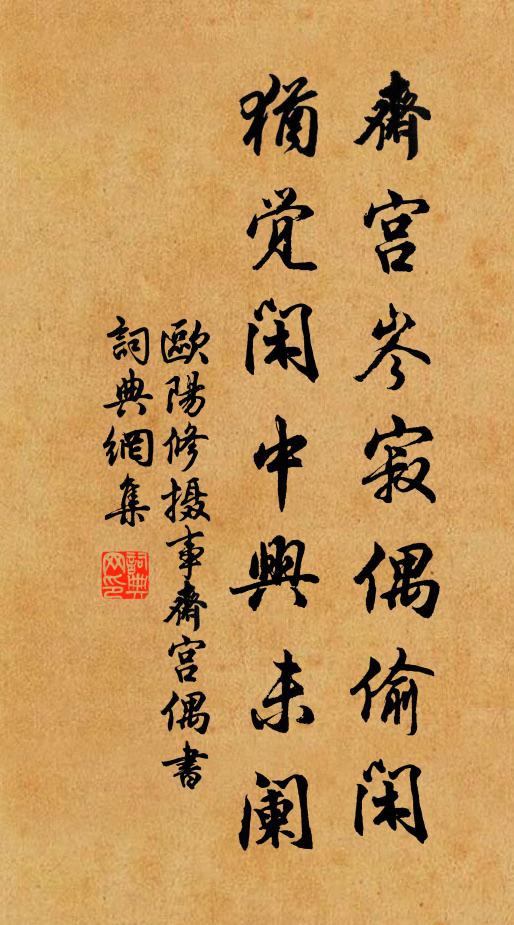 齋宮岑寂偶偷閑
猶覺閑中興未闌
歐陽修攝事齋宮偶書
詞典網集
詞典網印